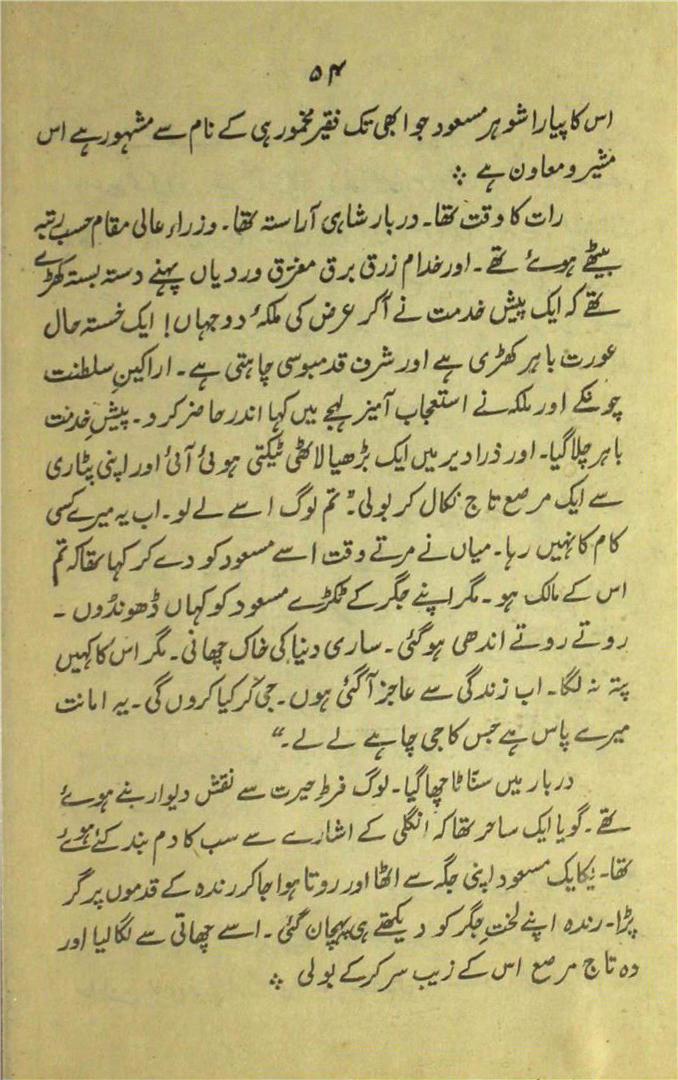 ۵۴
اس کا پیارا شوہر مسعود جو ابھی تک فقیر مخمور ہی کے نام سے مشہور ہے اس
مشیر و معاون ہے ؞
رات کا وقت تھا۔ دربار شاہی آراستہ تھا۔ وزراء عالی مقام حسب رتبہ
بیٹھے ہوئے تھے۔ اور خدام زرق برق مغرق وردیاں پہنے دستہ بستہ کھڑے
تھے کہ ایک پیش خدمت نے آکر عرض کی ملکۂ دو جہاں! ایک خستہ حال
عورت باہر کھڑی ہے اور شرف قدمبوسی چاہتی ہے۔ اراکینِ سلطنت
چونکے اور ملکہ نے استعجاب آمیز لہجے میں کہا اندر حاضر کرد۔ پیشِ خدمت
باہر چلا گیا۔ اور ذرا دیر میں ایک بڑھیا لاٹھی ٹیکتی ہوئی آئی اور اپنی پٹاری
سے ایک مرصع تاج نکال کر بولی۔" تم لوگ اسے لے لو۔ اب یہ میرے کسی
کام کا نہیں رہا۔ میاں نے مرتے وقت اسے مسعود کو دے کر کہا تھا کہ تم
اس کے مالک ہو۔ مگر اپنے جگر کے ٹکڑے مسعود کو کہاں ڈھونڈوں۔
روتے روتے اندھی ہو گئی۔ ساری دنیا کی خاک چھانی۔ مگر اس کا کہیں
پتہ نہ لگا۔ اب زندگی سے عاجز آگئی ہوں۔ جی کر کیا کروں گی۔ یہ امانت
میرے پاس ہے جس کا جی چاہے لے لے۔"
دربار میں سنّاٹا چھا گیا۔ لوگ فرطِ حیرت سے نقش دیوار بنے ہوئے
تھے۔ گویا ایک ساحر تھا کہ انگلی کے اشارے سے سب کا دم بند کئے ہوئے
تھا۔ یکایک مسعود اپنی جگہ سے اٹھا اور روتا ہوا جا کر رندہ کے قدموں پر گر
پڑا۔ رندہ اپنے لختِ جگر کو دیکھتے ہی پہچان گئی۔ اسے چھاتی سے لگا لیا اور
وہ تاج مرصع اس کے زیب سر کر کے بولی ؞